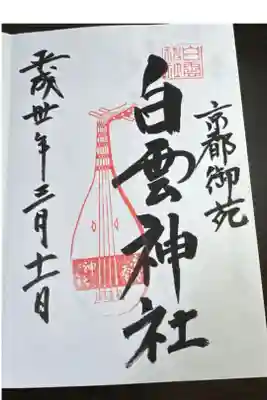 京都御苑
白雲神社
平成卅年三月十一日
白雲神社